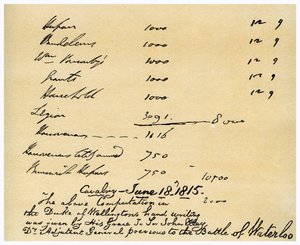 Hussars 1000 12 9
Vandeleur 1000 12 9
Wm Ponsonby's 1000 12 9
Grants 1000 12 9
Household 1000 12 9
Legion 3091. 8000
Hanoverian — 1116
Hanoverian 750
Brunswick Hussars 750 10700
Cavalry — June 18, 1815.
The above Computation in 2000
the Duke of Wellington's hand writing
was given by His Grace to Sir John Elley
Dy. Adjutant General previous to the Battle of Waterloo